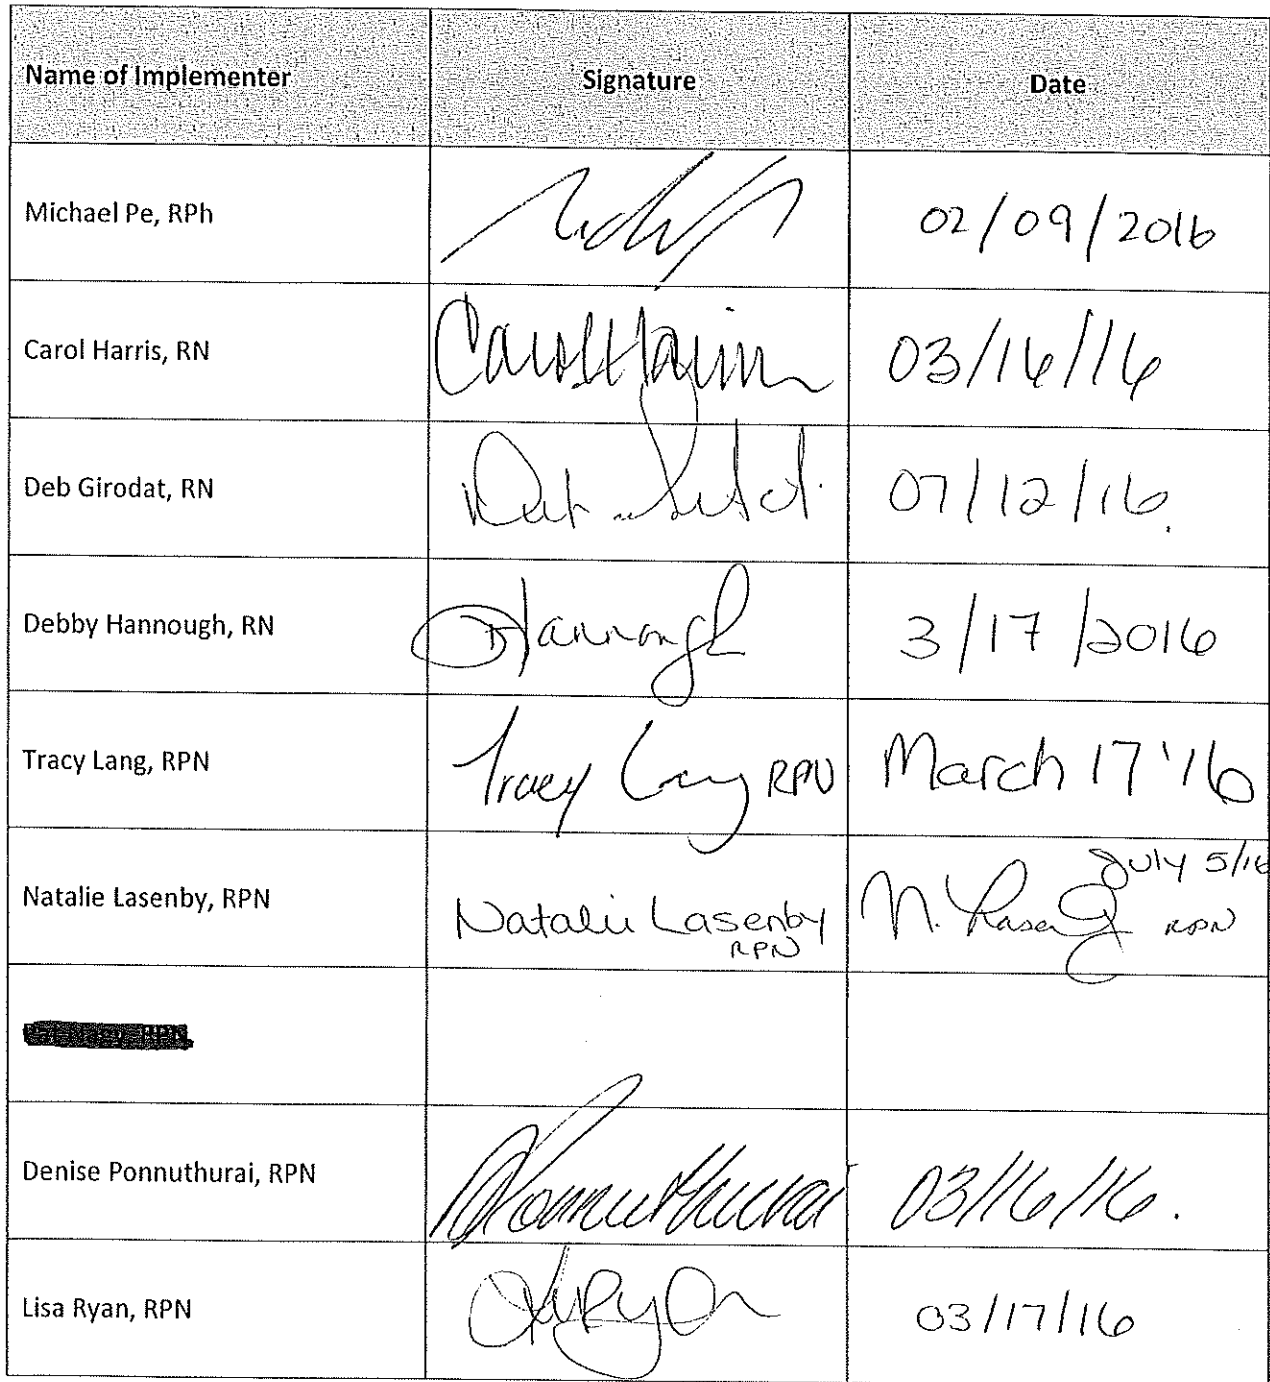 Name of Implementer Signature Date
Michael Pe, RPh 02/09/2016
Carol Harris, RN Carol Harris 03/16/16
Deb Girodat, RN 07/12/16.
Debby Hannough, RN DHannough 3/17/2016
Tracy Lang, RPN Tracy Lang RPN March 17 '16
July 5/16
Natalie Lasenby, RPN Natalie Lasenby N. Lasenby RPN
RPN
Denise Ponnuthurai, RPN DPonnuthurai 03/16/16.
Lisa Ryan, RPN LRyan 03/17/16